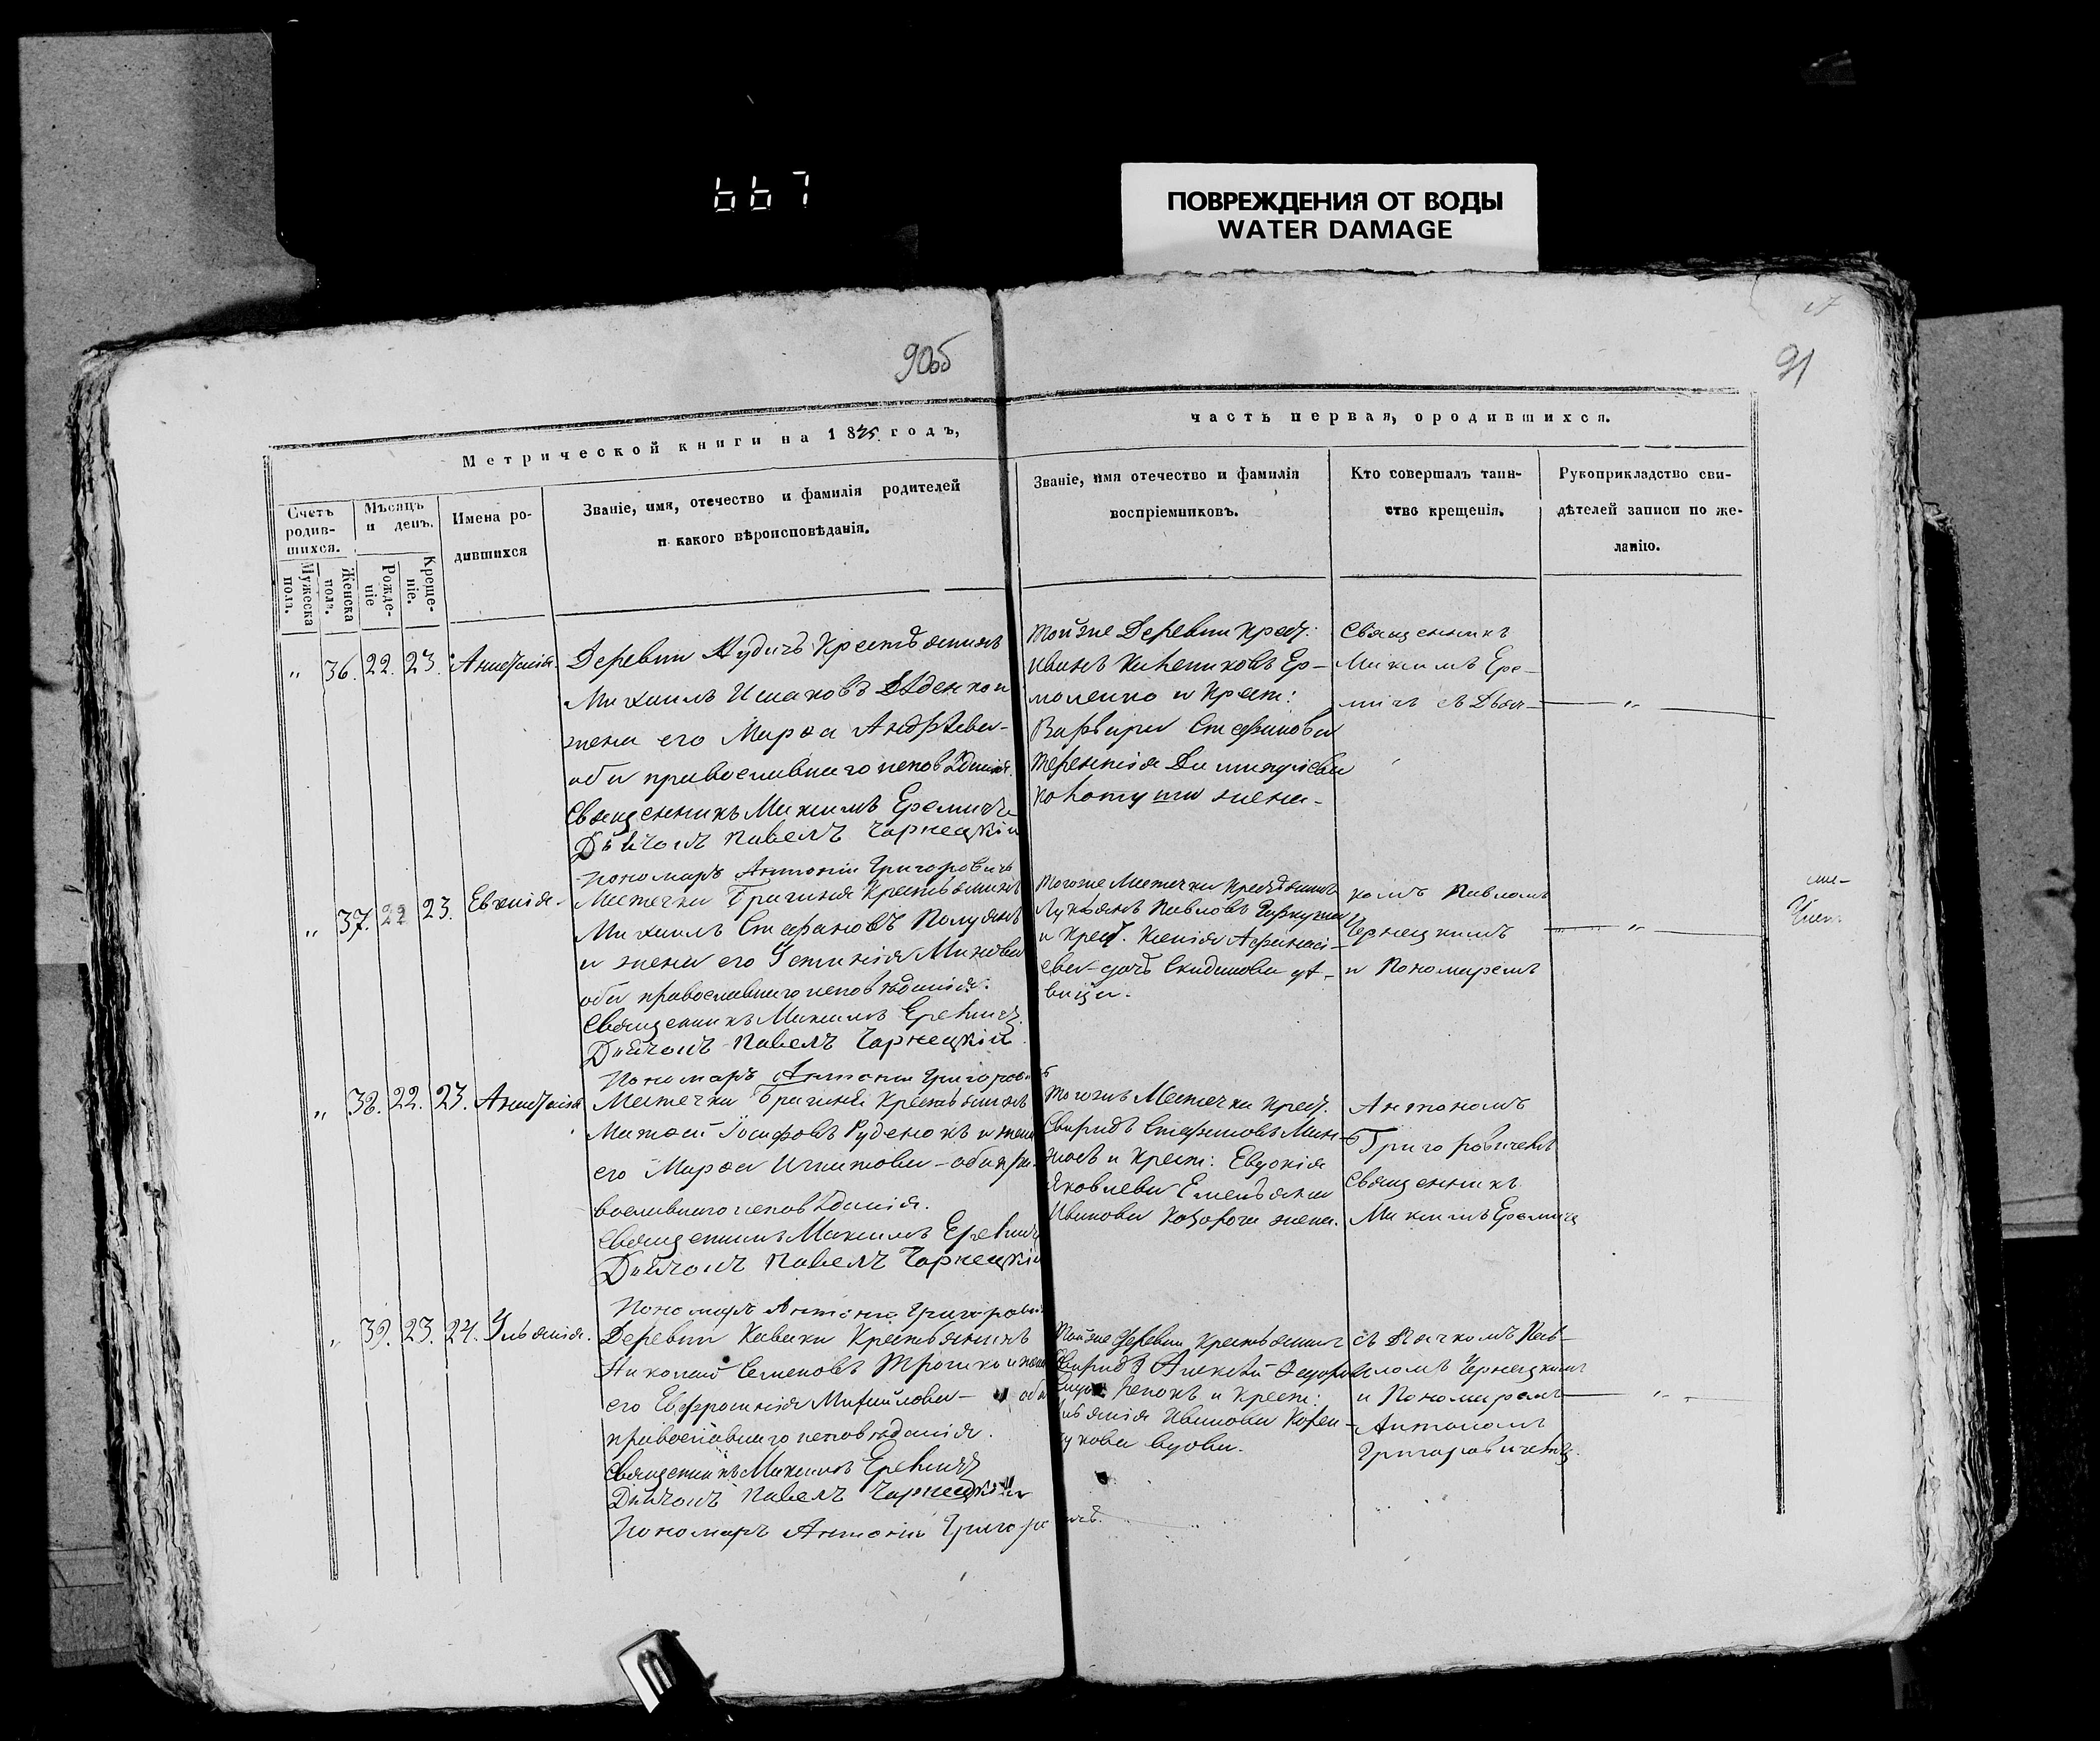 667
ПОВРЕЖДЕНИЯ ОТ ВОДЫ
WATER DAMAGE
90об
91
Метрической книги на 1875 годъ,
часть первая, ородившихся.
Счетъ родив-шихся.
Мужеска пола.
Женска пола.
Мѣсяцъ и день.
Рожде-ніе
Креще-ніе.
Имена ро-
дившихся
Званіе, имя, отечество и фамилія родителей
и какого вѣроисповѣданія.
Званіе, имя отечество и фамилія
воспріемниковъ.
Кто совершалъ таин-
ство крещенія.
Рукоприкладство сви-
дѣтелей записи по же-
ланію.
" 36. 22. 23. Анастасія
Деревни Крестьянинъ
Михаилъ Исааковъ
жена его Марѳа Андрѣева-
оба православнаго исповѣданія.
Священникъ Максимъ Еремичъ
Діаконъ Павелъ Чарнецкій
Пономаръ Антоній Григоровичъ
тойже Деревни Крест:
Иванъ Ер-
моленко и Крест:
Варвара Стефанова
Терентія Димитріева
жена-
Священникъ
Максимъ Ере-
мичъ съ Дьяч-
"
" 37. 22 23. Евгенія-
Местечка Брагиня Крестьянинъ
Михаилъ Стефановъ Полуянъ
и жена его Устинія Минова
оба православнаго исповѣданія.
Священникъ Максимъ Еремичъ
Діаконъ Павелъ Чарнецкій
Пономаръ Антоній Григоровичъ
тогоже Местечка Крестьянинъ
Лукьянъ Павловъ
и Крест. Ксенія Афанасі-
ева-дочь дѣ-
вица.
комъ Павломъ
Чернецкимъ
и Пономаремъ
"
" 38. 22. 23. Анастасія
Местечка Брагиня Крестьянинъ
Матвей Іосифовъ Руденокъ и жена
его Марѳа Игнатова-оба пра-
вославнаго исповѣданія.
Священникъ Максимъ Еремичъ
Діаконъ Павелъ Чарнецкій
Пономаръ Антоній Григорови
тогоже Местечка Крест.
Свиридъ Стефановъ
и Крест: Евдокія
Яковлева Емельяна
Иванова жена.
Антономъ
Григоровичемъ
Священникъ
Максимъ Еремичъ
" 39. 23. 24. Ульянія.
Деревни Крестьянинъ
Николай Семеновъ и жена
его Евфросинія Михайлова- оба
православнаго исповѣданія.
Священникъ Максимъ Еремичъ
Діаконъ Павелъ Чарнецкій
Пономаръ Антоній Григоровичъ.
Тойже Деревни Крестьянинъ
Алексѣй
и Крест:
Ульянія Иванова
вдова.
съ Дьячкомъ Пав-
ломъ Чернецкимъ
и Пономаремъ
Антономъ
Григоровичемъ.
"